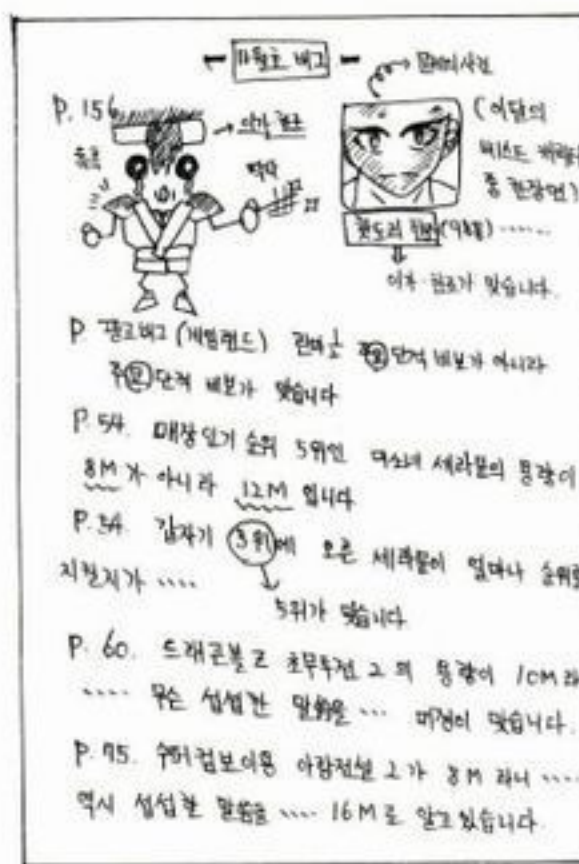 11월호 버그
P. 156
(이달의
베스트
중 한장면)
이 맞습니다.
P. 광고버그 (게임랜드) 란마½
단적 비보가 아니라
단적 비보가 맞습니다
P. 54. 매장인기 순위 5위인 미소녀 세라문의 용량이
8M가 아니라 12M 입니다
P. 54. 갑자기 3위에 오른 세라문이 얼마나 순위로
지
5위가 맞습니다
P. 60. 드래곤볼 Z 초무투전 2의 용량이 10M라
무슨 섭섭한 말씀을 … 미정이 맞습니다.
P. 75. 수퍼컴보이용 아랑전설 2가 8M 라니 ….
역시 섭섭한 말씀을 …. 16M로 알고있습니다.